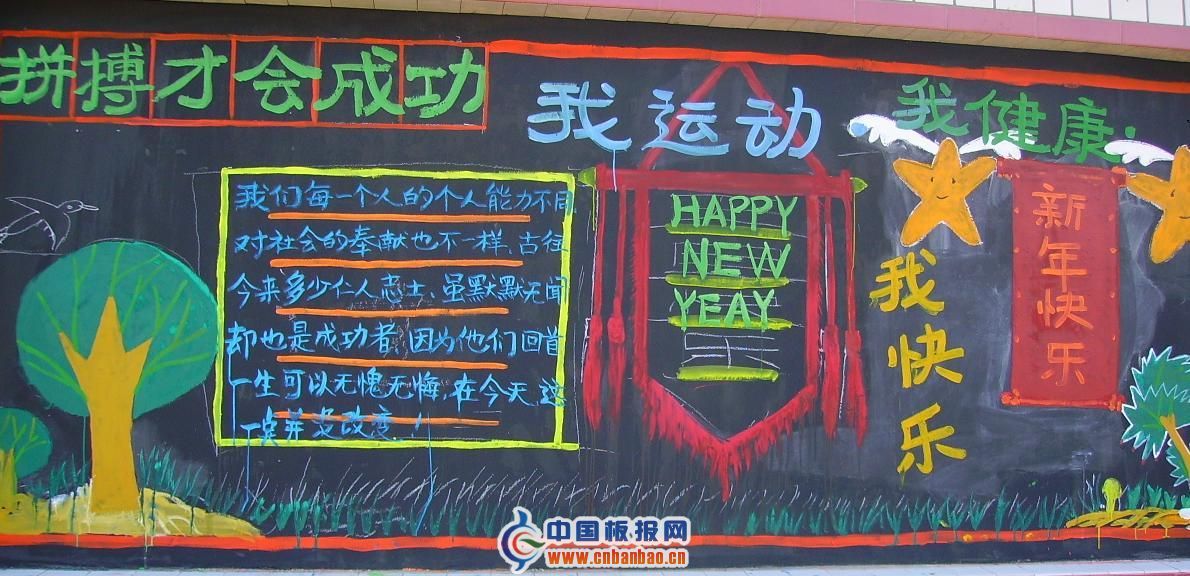 拼搏才会成功
我运动
我健康
我们每一个人的个人能力不同
对社会的奉献也不一样、古往
今来多少仁人志士、虽默默无闻
却也是成功者,因为他们回首
一生可以无愧无悔,在今天,这
一点并没改变!
HAPPY
NEW
YEAY
乐
我快乐
新年快乐
中国板报网
www.cnbanbao.cn